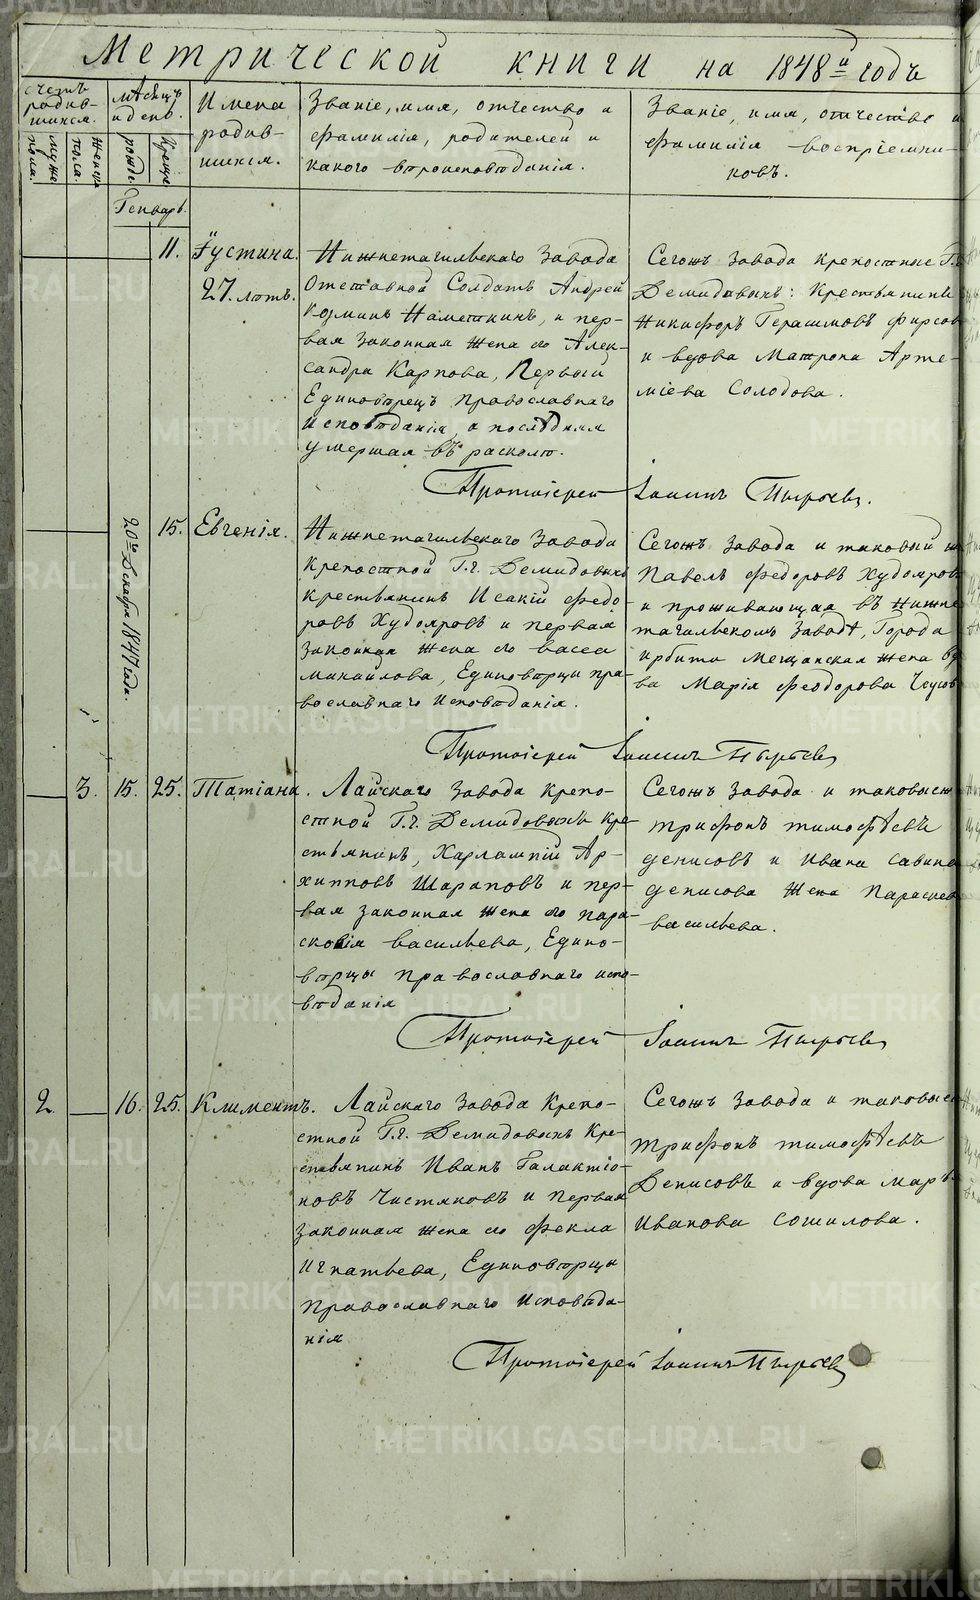 Метрической книги на 1848й годъ
счетъ родив-шихся.
муже пола.
женск пола.
мѣсяцъ и день.
рожде
Креще
Имена родив-шихся.
Званіе, имя, отчество и
фамилія, родителей и
какого вѣроисповѣданія.
Званіе, имя, отчество и
фамилія воспріемни-
ковъ.
Генварь.
11.
Іустина.
27. лѣтъ.
Нижнетагильскаго Завода
Отставной Солдатъ Андрей
Козминъ Наметкинъ, и пер-
вая законная жена его Алек-
сандра Карпова, Первый
Единовѣрецъ Православнаго
исповѣданія, а послѣдняя
умершая въ расколѣ.
Сегожъ Завода крепостные Г.
Демидовыхъ: Крестьянинъ
Никифоръ Герасимовъ Фирсов
и вдова Матрона Арте-
міева Солодова.
Протоіерей Іоаннъ Пырьевъ.
20го Декабря 1847 года
15.
Евгенія.
Нижнетагильскаго Завода
крепостной Г.г. Демидовыхъ
крестьянинъ Исакій Федо-
ровъ Худояровъ и первая
законная жена его васса
михайлова, Единовѣрцы пра-
вославнаго Исповѣданія.
Сегожъ Завода и таковый
Павелъ Федоровъ Худояров
и проживающая въ Нижне
тагильскомъ Заводѣ, Города
ирбити Мещанская жена вдо
ва Марія Феодорова
Протоіерей Іоаннъ Пырьевъ
3. 15. 25.
Татіана.
Лайскаго Завода крепо-
стной Г.г. Демидовыхъ кре-
стьянинъ, Харлампій Ар-
хипповъ Шараповъ и пер-
вая законная жена его пара-
сковія васильева, Едино-
вѣрцы православнаго испо-
вѣданія
Сегожъ Завода и таковыеж
трифонъ тимофѣевъ
денисовъ и Ивана савина
денисова жена Параскев
васильева.
Протоіерей Іоаннъ Пырьевъ
2. 16. 25.
Климентъ.
Лайскаго Завода Крепо-
стной Г.г. Демидовыхъ Кре-
стьянинъ Иванъ Галактіо-
новъ Чистяковъ и Первая
Законная жена его Фекла
Игнатьева, Единовѣрцы
Православнаго Исповѣда-
нія
Сегожъ Завода и таковыеж
трифонъ тимофѣевъ
Денисовъ и вдова марѳ
Иванова сошилова.
Протоіерей Іоаннъ Пырьевъ